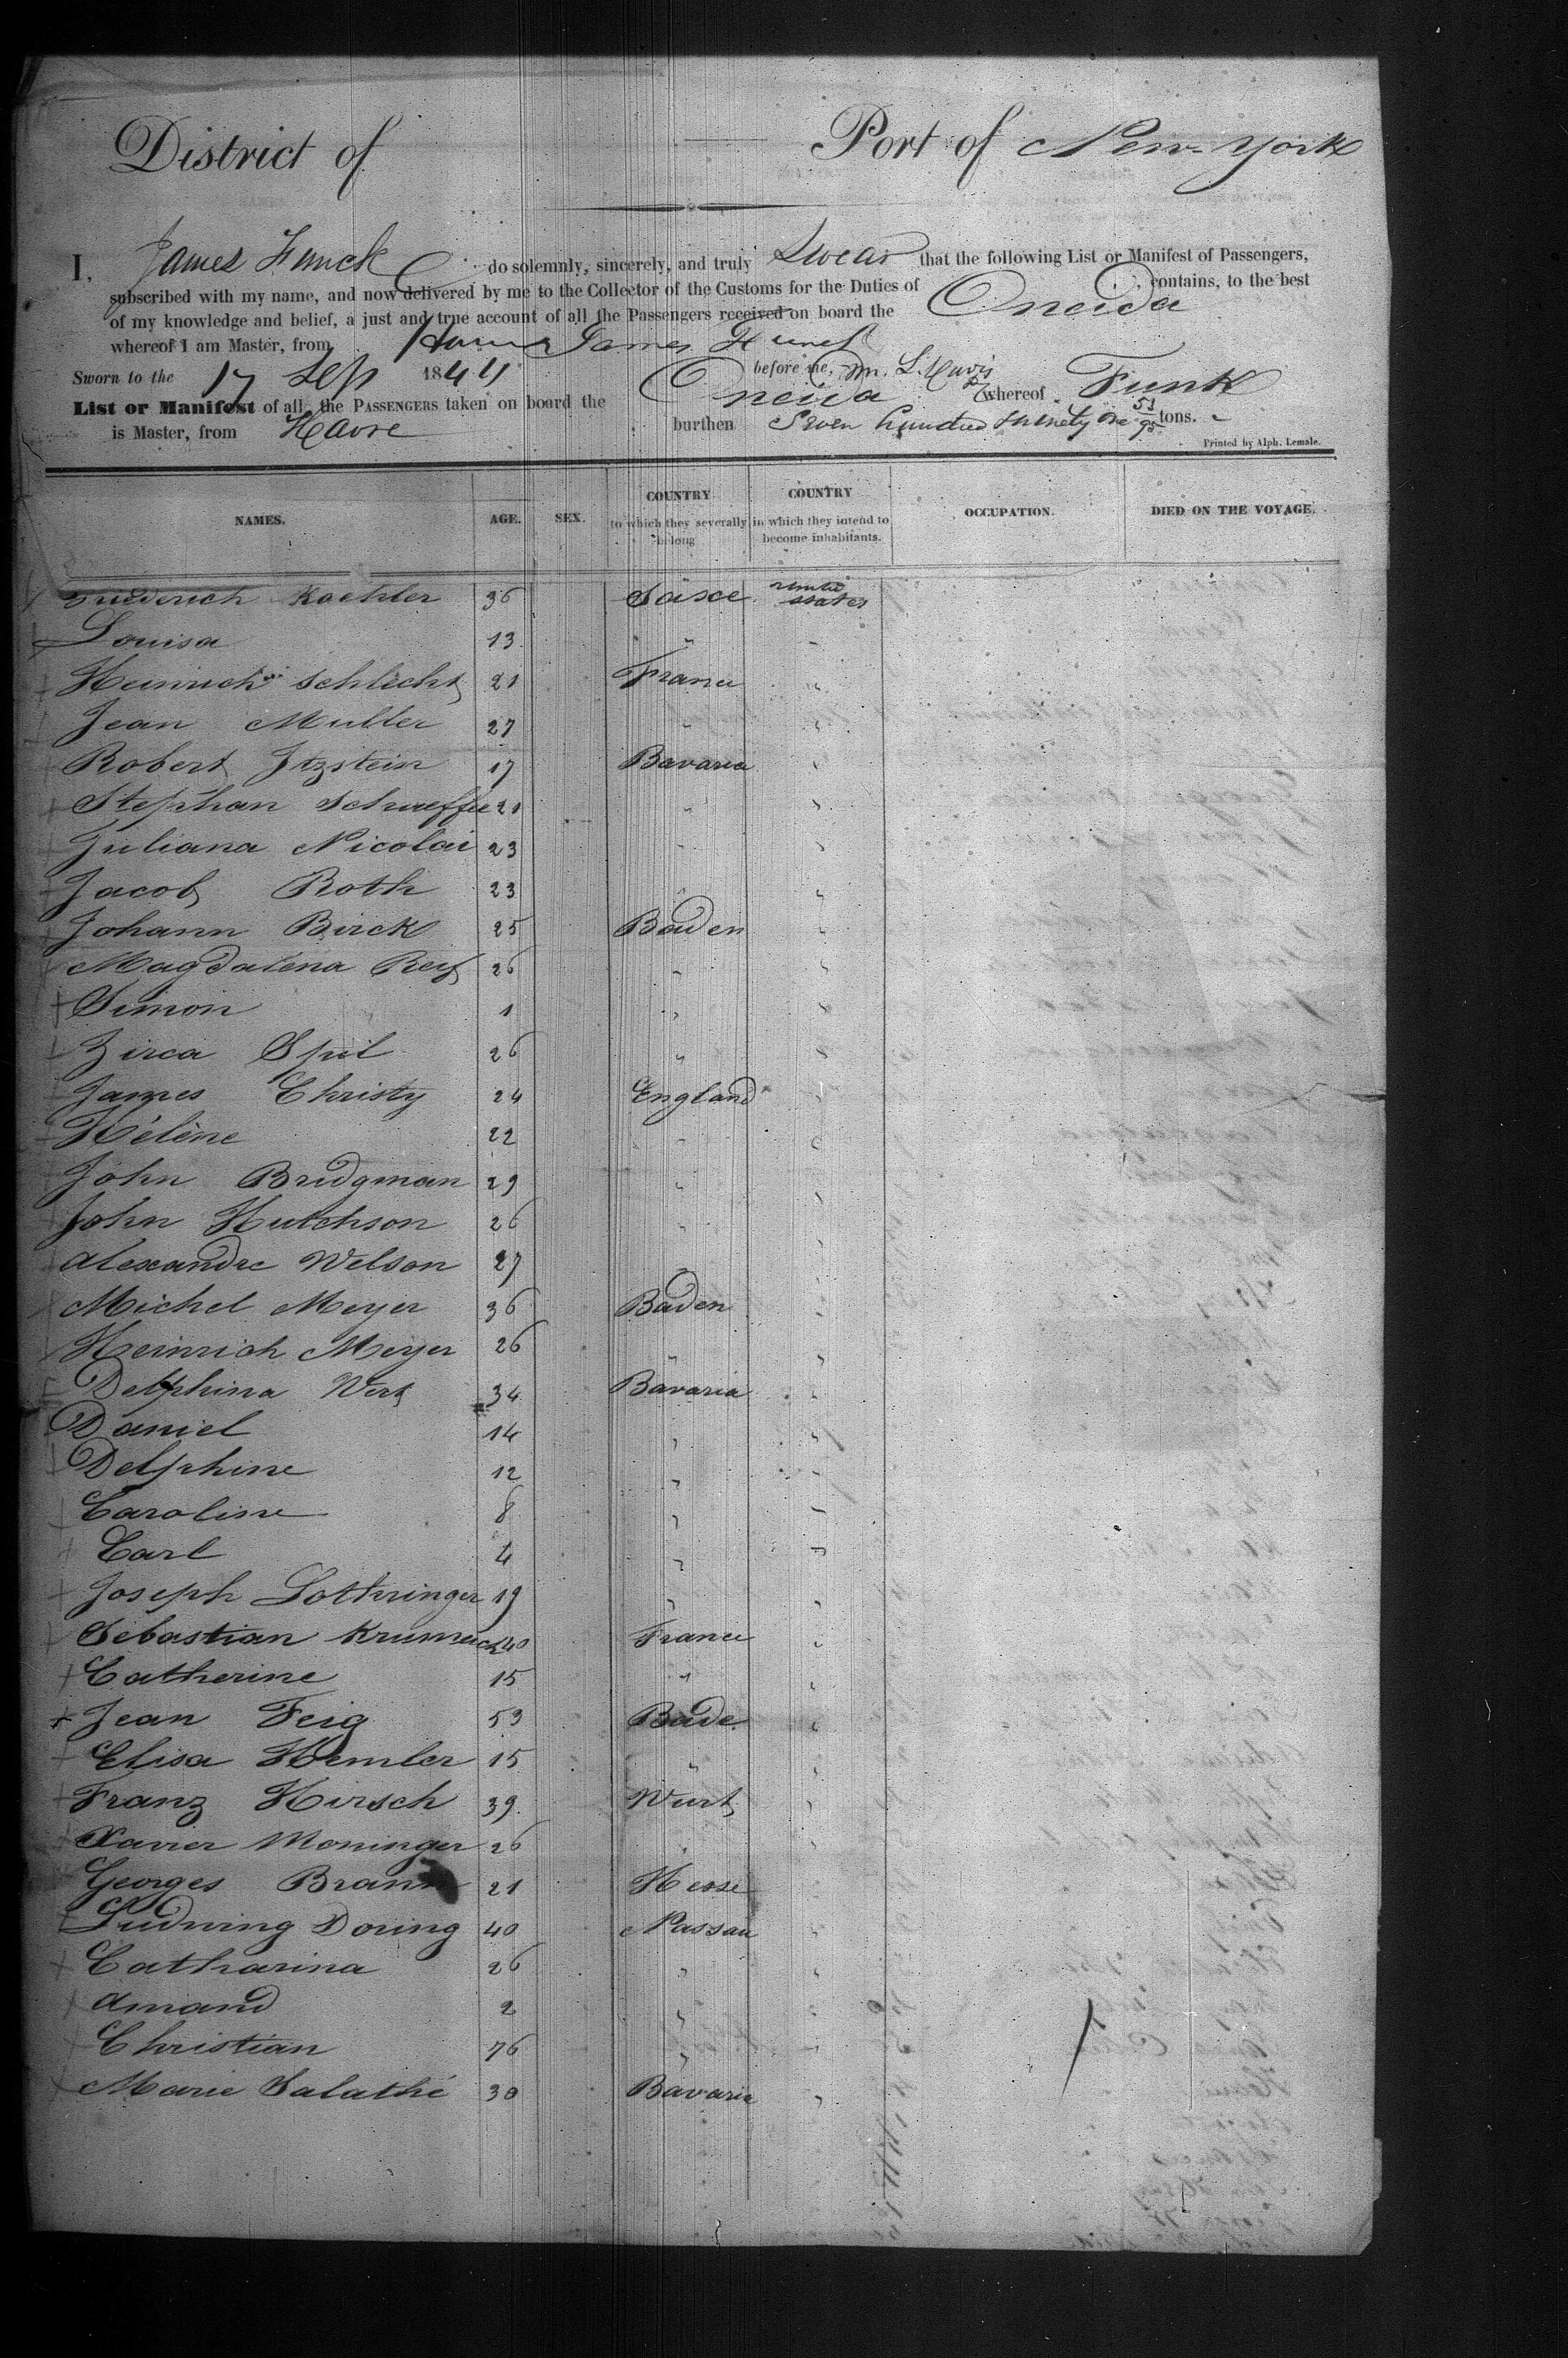 District of Port of New-York
I, James Funck do solemnly, sincerely, and truly Swear that the following List or Manifest of Passengers,
subscribed with my name, and now delivered by me to the Collector of the Customs for the Duties of contains, to the best
of my knowledge and belief, a just and true account of all the Passengers received on board the Oneida
whereof I am Master, from Havre James Funck
Sworn to the 17 Sep 1844 before me,
List or Manifest of all the PASSENGERS taken on board the Oneida whereof Funk
is Master, from Havre burthen Seven hundred ninety one tons.
Printed by Alph. Lemale.
NAMES. AGE. SEX. COUNTRY to which they severally belong COUNTRY in which they intend to become inhabitants. OCCUPATION. DIED ON THE VOYAGE.
Friederich Koehler 36 Saxe united states
Louisa 13 "
Heinrich Schlecht 21 France "
Jean Muller 27 " "
Robert Itzstein 17 Bavaria "
Stephan Schaeffer 21 " "
Juliana Nicolai 23 " "
Jacob Roth 23 " "
Johann Birck 25 Baden "
Magdalena Rey 26 " "
Simon 1 " "
Zirca Spil 26 " "
James Christy 24 England "
Hélène 22 " "
John Bridgman 29 " "
John Hutchson 26 " "
Alexandre Welson 27 " "
Michel Meyer 36 Baden "
Heinrich Meyer 26 " "
Delphina Wert 34 Bavaria "
Daniel 14 " "
Delphine 12 " "
Caroline 8 " "
Carl 4 " "
Joseph Lothringer 19 " "
Sebastian Krumeich 40 France "
Catherine 15 " "
Jean Feig 59 Bade "
Elisa Hemler 15 " "
Franz Hirsch 39 Wurt "
Xavier Moninger 26 " "
Georges Brann 21 Hesse "
Ludwing Doring 40 Nassau "
Catharina 26 " "
Amand 2 " "
Christian 76 " "
Marie Salathé 30 Bavaria "